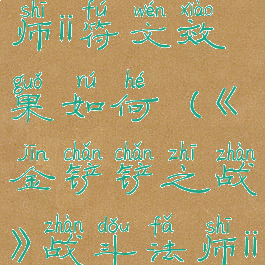 shī fú wén xiào
师ii符文效
guǒ rú hé
果如何(《
jīn chǎn chǎn zhī zhàn
金铲铲之战
zhàn dǒu fǎ shī
》战斗法师ii